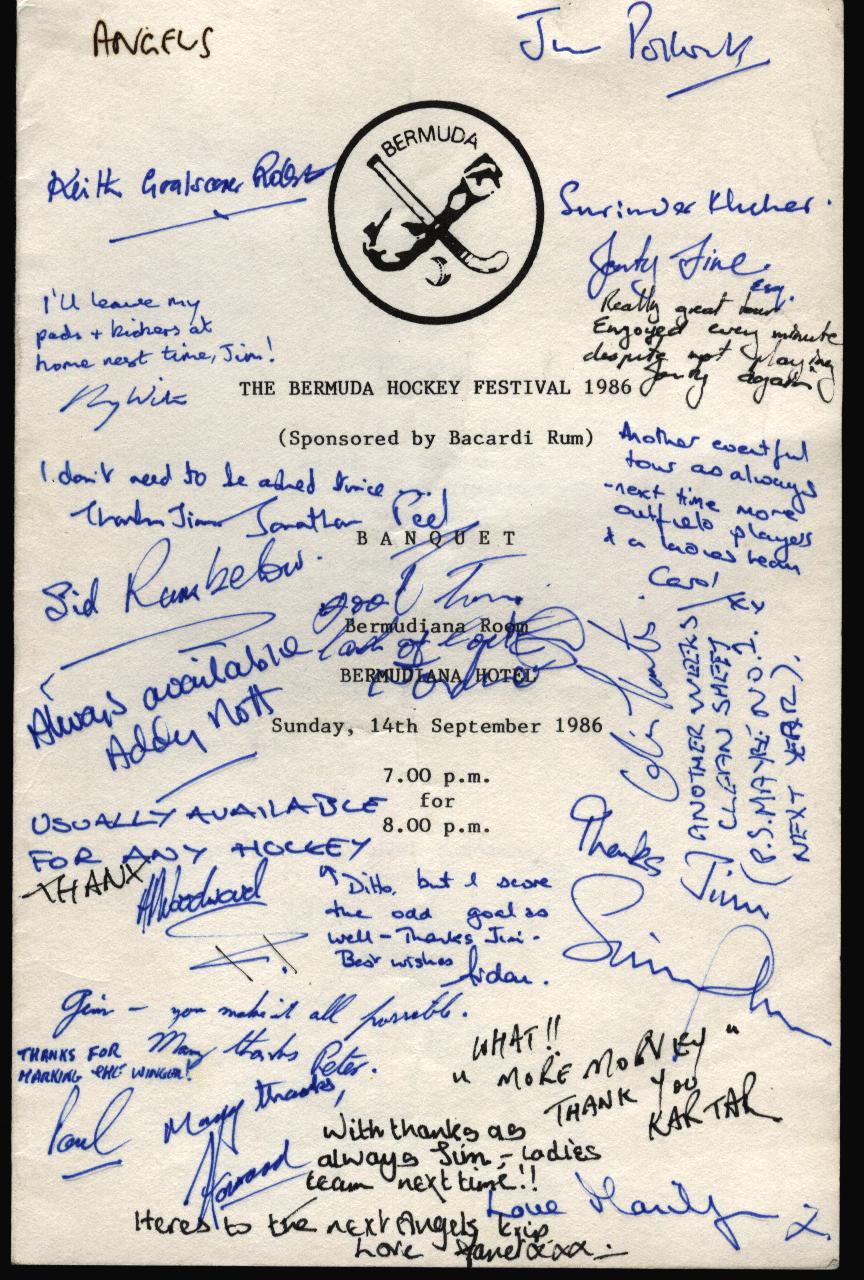 ANGELS
Jim
BERMUDA
Keith Goalscorer
Surinder
Jonty Fine.
Esq.
Really great tour
Enjoyed every minute
despite not playing
Jonty again
I'll leave my
pads + kickers at
home next time, Jim!
THE BERMUDA HOCKEY FESTIVAL 1986
(Sponsored by Bacardi Rum)
Another eventful
tour as always
- next time more
outfield players
+ a ladies team
Carol
xx
I don't need to be asked twice ....
Thanks Jim Jonathan Peel
BANQUET
Sid Rumbelow.
Bermudiana Room
BERMUDIANA HOTEL
Sunday, 14th September 1986
Always available
Addy Nott
7.00 p.m.
for
8.00 p.m.
Colin
ANOTHER WEEKS
CLEAN SHEET
(P.S. MAYBE NO. 1.
NEXT YEAR).
USUALLY AVAILABLE
FOR ANY HOCKEY
THANX
AWoodward
Ditto, but I score
the odd goal as
well - Thanks Jim -
Best wishes
Aidan.
Thanks
Jim
Jim - you make it all possible.
Many thanks Peter.
THANKS FOR
MARKING THE WINGER!
Paul
Many thanks,
Howard
WHAT!!
"MORE MORVEY"
THANK YOU
KARTAR
With thanks as
always Jim - Ladies
team next time!!
Love
Heres to the next Angels trip
Love Janet xxx.